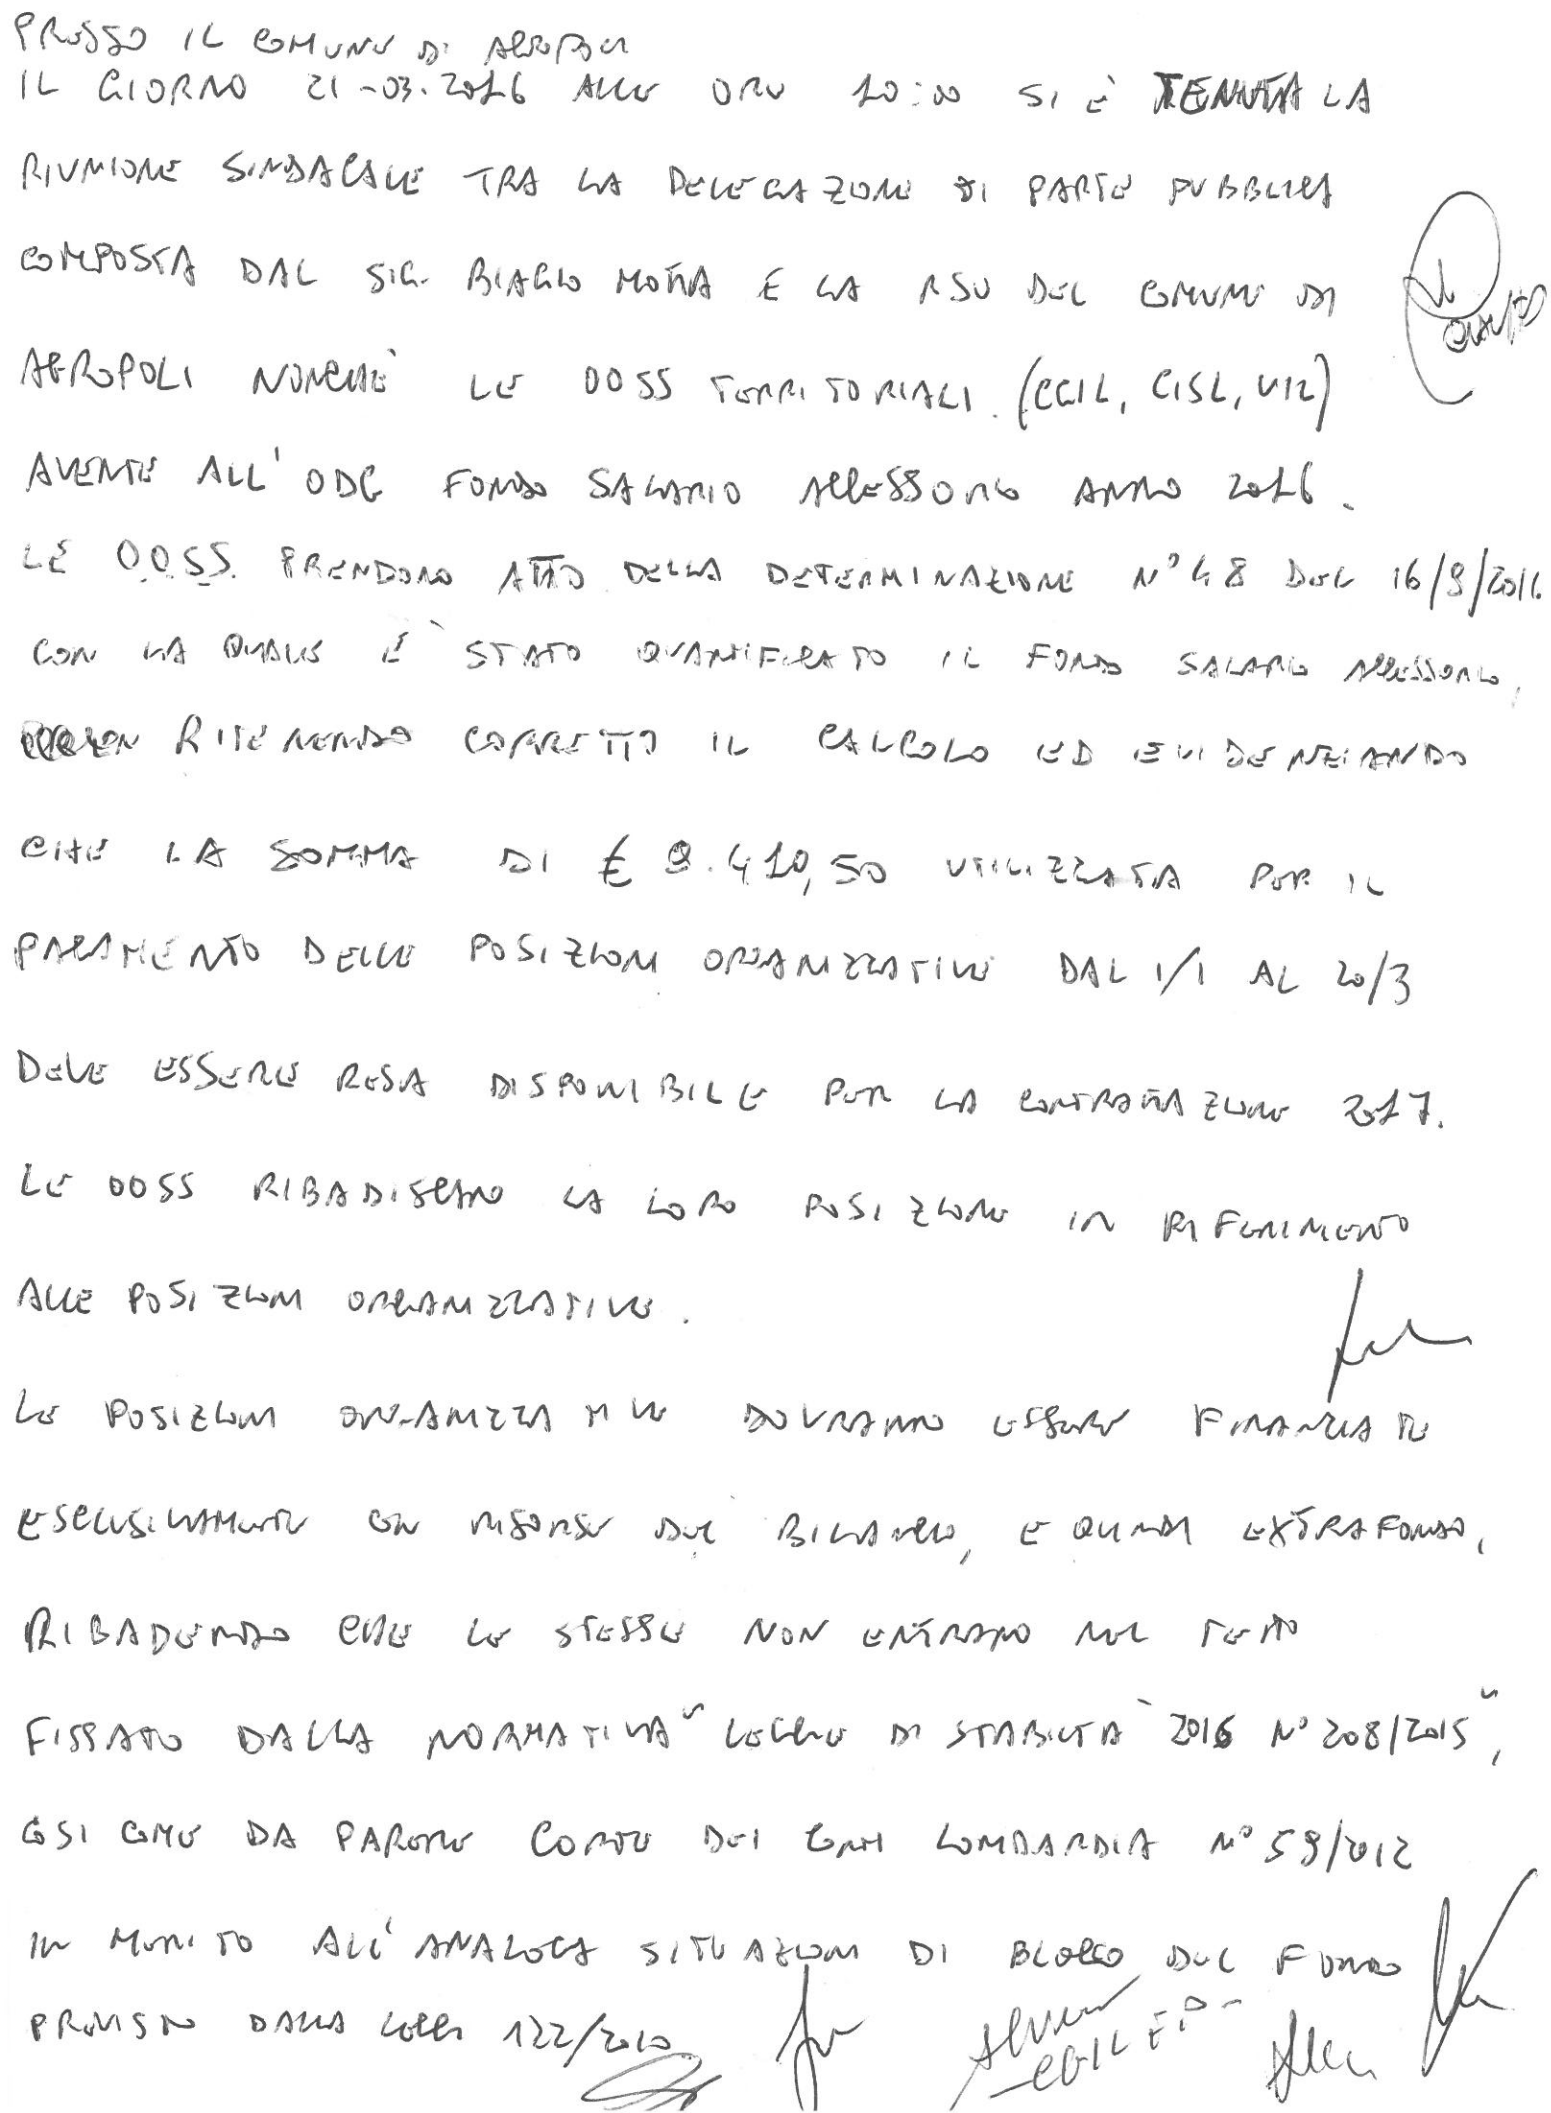 PRESSO IL COMUNE DI AGROPOLI
IL GIORNO 21-03.2016 ALLE ORE 10:00 SI È TENUTA LA
RIUNIONE SINDACALE TRA LA DELEGAZIONE DI PARTE PUBBLICA
COMPOSTA DAL SIG. BIAGIO MOTTA E LA RSU DEL COMUNE DI
AGROPOLI NONCHÈ LE OOSS TERRITORIALI. (CGIL, CISL, UIL)
AVENTE ALL'ODG FONDO SALARIO ACCESSORIO ANNO 2016.
LE O.O.S.S. PRENDONO ATTO DELLA DETERMINAZIONE N° 48 DEL 16/9/2016
CON LA QUALE È STATO QUANTIFICATO IL FONDO SALARIO ACCESSORIO,
RITENENDO CORRETTO IL CALCOLO ED EVIDENZIANDO
CHE LA SOMMA DI € 9.410,50 UTILIZZATA PER IL
PAGAMENTO DELLE POSIZIONI ORGANIZZATIVE DAL 1/1 AL 20/3
DEVE ESSERE RESA DISPONIBILE PER LA CONTRATTAZIONE 2017.
LE OOSS RIBADISCONO LA LORO POSIZIONE IN RIFERIMENTO
ALLE POSIZIONI ORGANIZZATIVE.
LE POSIZIONI ORGANIZZATIVE DOVRANNO ESSERE FINANZIATE
ESCLUSIVAMENTE CON RISORSE DEL BILANCIO, E QUINDI EXTRAFONDO,
RIBADENDO CHE LE STESSE NON ENTRANO NEL TETTO
FISSATO DALLA NORMATIVA "LEGGE DI STABILITÀ 2016 N° 208/2015",
COSI COME DA PARERE CORTE DEI CONTI LOMBARDIA N° 59/2012
IN MERITO ALL'ANALOGA SITUAZIONI DI BLOCCO DEL FONDO
PREVISTO DALLA LEGGE 122/2010
CGIL F.P.